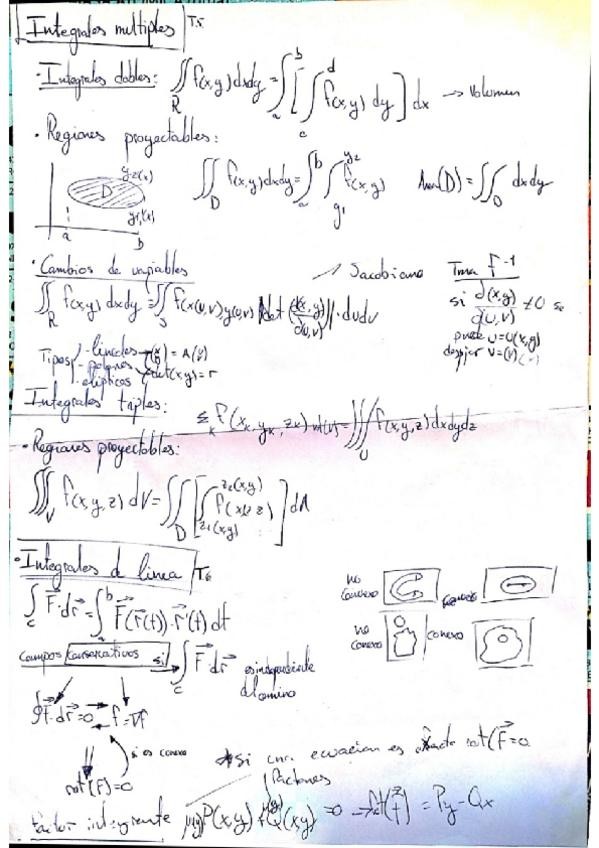 Integrales multiples T5
· Integrales dobles: ∬_R f(x,y)dxdy = ∫_a^b [∫_c^d f(x,y) dy] dx → Volumen
· Regiones proyectables:
y2(x)
D
y1(x)
a b
∬_D f(x,y)dxdy = ∫_a^b ∫_{y1}^{y2} f(x,y) Area(D) = ∬_D dxdy
· Cambios de variables Jacobiano Tma f^-1
∬_R f(x,y) dxdy = ∬_S f(x(u,v),y(u,v)) |det (d(x,y)/d(u,v))| · dudv
si d(x,y)/d(u,v) ≠ 0 se
puede u=u(x,y)
Tipos - lineales
- polares
- elipticos
Integrales triples:
Σ_k f(x_k, y_k, z_k) = ∭_U f(x,y,z)dxdydz
· Regiones proyectables:
∭_V f(x,y,z) dV = ∬_D [∫_{z1(x,y)}^{z2(x,y)} f(x,y,z)] dA
· Integrales de linea T6
∫_c F·dr = ∫_a^b F(r(t))·r'(t) dt
no conexo
no conexo conexo
campos conservativos si ∫_c F dr es independiente
del camino
∮F·dr=0 f=∇f
si es conexo
rot(F)=0
* si una ecuacion es exacta rot(F=0
factor integrante P(x,y) + Q(x,y) = 0 → = Py-Qx